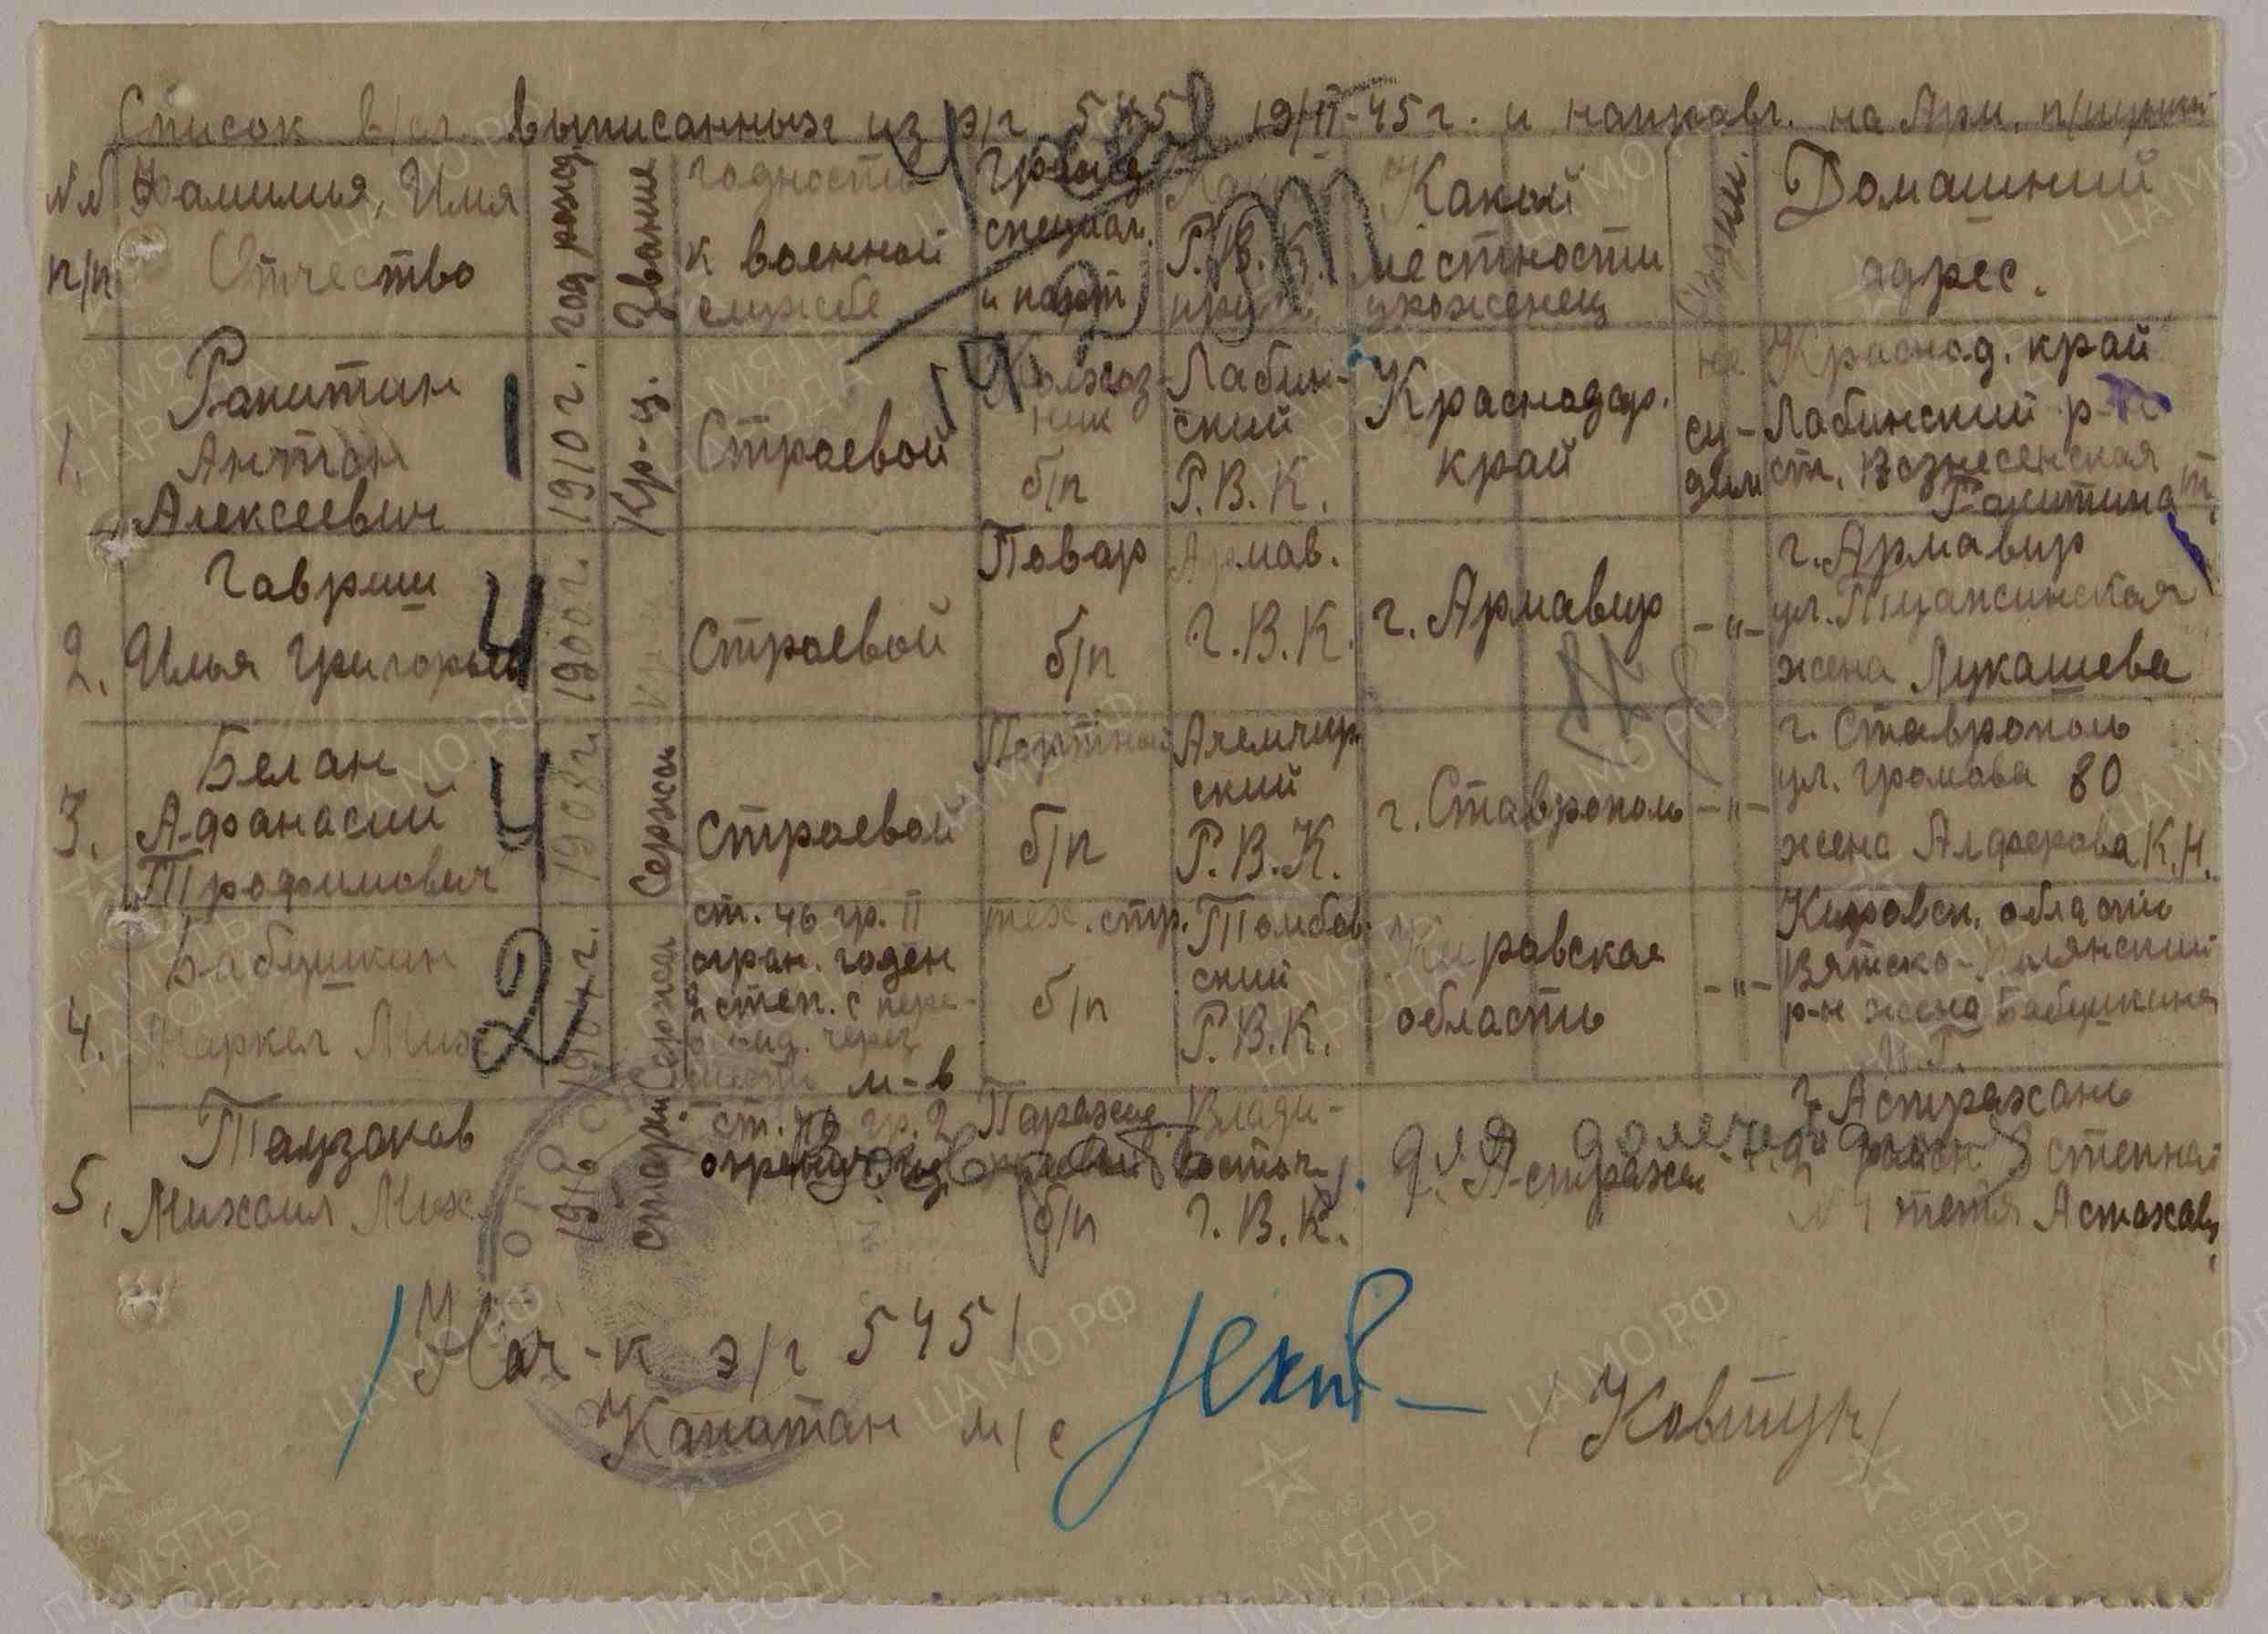 Список в/сл. выписанных из э/г 5451 19/II-45 г. и направл. на Арм. п/пункт
№№ п/п
Фамилия, Имя
Отчество
год рожд.
Звание
годность
к военной
службе
Гр-
специал.
и парт
Р.В.К.
Какой
местности
уроженец
Домашний
адрес.
1.
Ракитин
Антон
Алексеевич
1
1910 г.
Кр-ц.
Строевой
Колхоз-
ник
б/п
Лабин-
ский
Р.В.К.
Краснодар.
край
не
су-
дим
Краснод. край
Лабинский р-н
ст. Вознесенская
Ракитина
2.
Гавриш
Илья Григорьев
4
1900 г.
Строевой
Повар
б/п
Армав.
Г.В.К.
г. Армавир
-"-
г. Армавир
ул. Туапсинская
жена Лукашева
3.
Белан
Афанасий
Трофимович
4
1908 г.
Сержан
Строевой
Портной
б/п
Ачемчир
ский
Р.В.К.
г. Ставрополь
-"-
г. Ставрополь
ул. Громова 80
жена Алферова К.Н.
4.
Бабушкин
Маркел Мих
2
1904 г.
Сержан
ст. 46 гр. II
огран. годен
2 степ. с пере-
через
м-в
тех. стр.
б/п
Тамбов-
ский
Р.В.К.
Кировская
область
-"-
Кировск. области
Вятско-Полянский
р-н жена Бабушкина
5.
Таузаков
Михаил Мих
1916
старш
ст. 46 гр. 2
б/п
Влади-
восточ
Г.В.К.
г. Астрахан
г. Астрахань
тетя Астахова
Нач-к э/г 5451
Капитан м/с
/Ковтун/
ЦА МО РФ
ПАМЯТЬ
НАРОДА
1941 1945